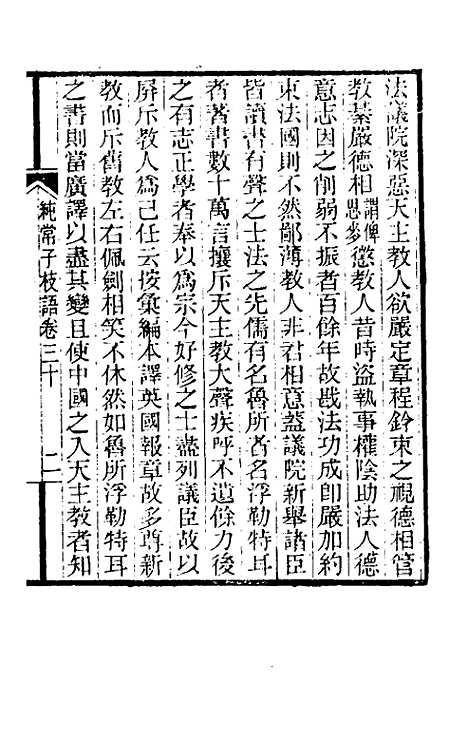 法議院深惡天主教人欲嚴定章程鈐束之視德相管
教綦嚴德相謂俾思麥懲教人昔時盜執事權陰助法人德
意志因之削弱不振者百餘年故戡法功成卽嚴加約
束法國則不然鄙薄教人非君相意蓋議院新舉諸臣
皆讀書有聲之士法之先儒有名魯所者名浮勒特耳
者著書數十萬言攘斥天主教大聲疾呼不遺餘力後
之有志正學者奉以爲宗今好修之士盡列議臣故以
屏斥教人爲己任云按彙編本譯英國報章故多尊新
教而斥舊教左右佩劍相笑不休然如魯所浮勒特耳
之書則當廣譯以盡其變且使中國之入天主教者知
純常子枝語卷三十 二